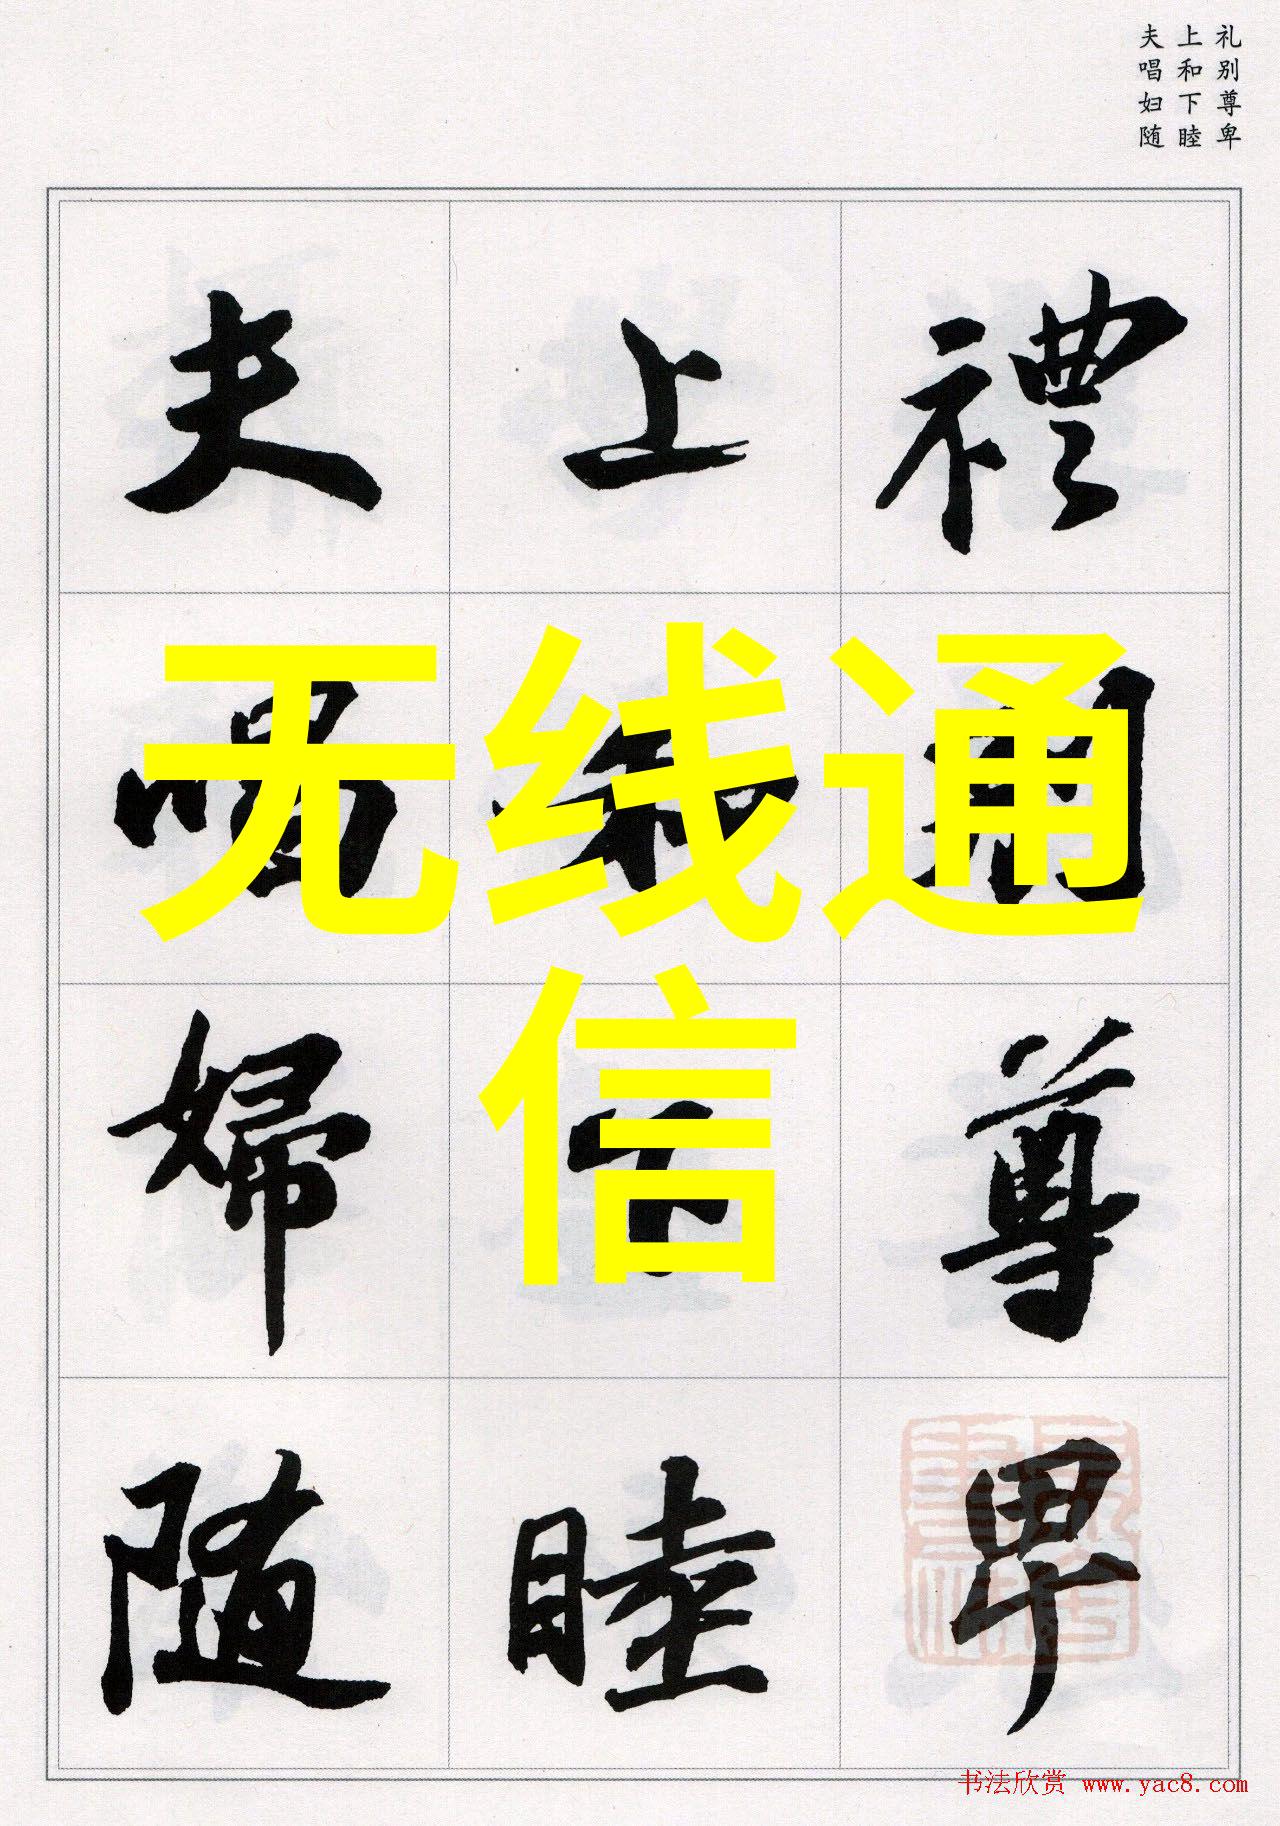 礼别尊卑
上和下睦
夫唱妇随
禮别尊卑
上和下睦
夫唱婦随
无线通
信
书法欣赏 www.yac8.com